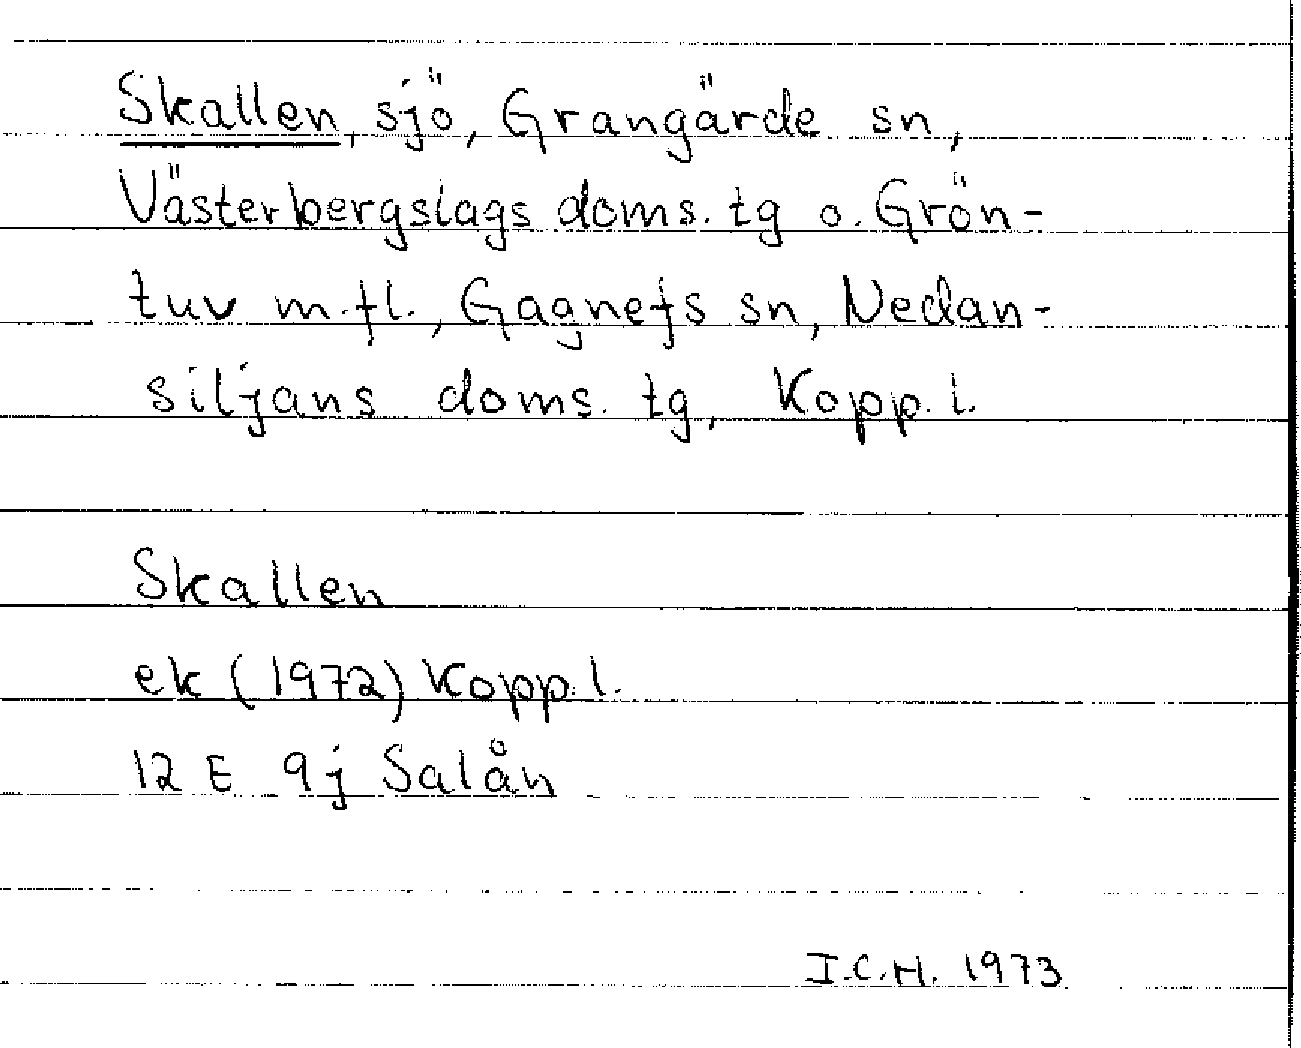 Skallen, sjö, Grangärde sn,
Västerbergslags doms. tg o. Grön-
tuv m.fl., Gagnefs sn, Nedan-
siljans doms. tg, Kopp. l.
Skallen
ek (1972) Kopp. l.
12 E 9j Salån
I.C.H. 1973